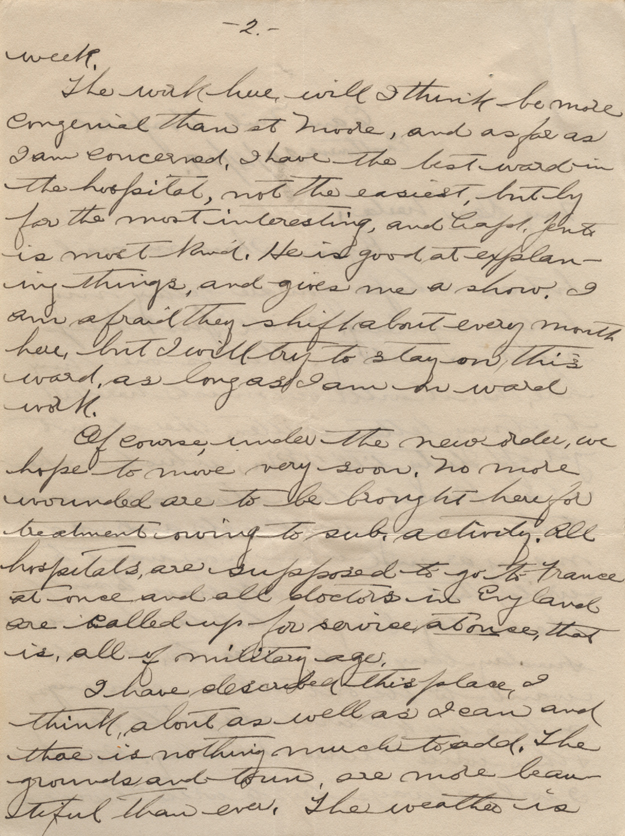 -2.-
week.
The work here, will I think be more
congenial than at Moore, and as far as
I am concerned, I have the best ward in
the hospital, not the easiest, but by
for the most interesting, and Capt.
is most kind. He is good at explain-
ing things, and gives me a show. I
am afraid they shift about every month
here, but I will try to stay on this
ward, as long as I am on ward
work.
Of course, under the new order, we
hope to move very soon. No more
wounded are to be brought here for
treatment owing to sub. activity. All
hospitals, are supposed to go to France
at once and all doctors in England
are called up for service, at once, that
is, all of military age.
I have described this place, I
think, about as well as I can and
there is nothing much to add. The
grounds and town, are more beau-
tiful than ever. The weather is